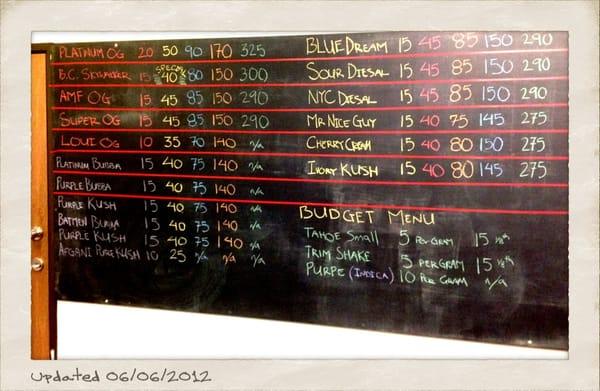 PLATINUM OG 20 50 90 170 325
SPECIAL
B.C. SKYWALKER 15 40 80 150 300
AMF OG 15 45 85 150 290
SUPER OG 15 45 85 150 290
LOUI OG 10 35 70 140 n/a
PLATINUM BUBBA 15 40 75 140 n/a
PURPLE BUBBA 15 40 75 140
PURPLE KUSH 15 40 75 140 n/a
BATMEN BUBBA 15 40 75 140 n/a
PURPLE KUSH 15 40 75 140 n/a
AFGANI PURE KUSH 10 25 n/a n/a n/a
BLUE DREAM 15 45 85 150 290
SOUR DIESAL 15 45 85 150 290
NYC DIESAL 15 45 85 150 290
MR NICE GUY 15 40 75 145 275
CHERRY CREAM 15 40 80 150 275
IVORY KUSH 15 40 80 145 275
BUDGET MENU
TAHOE SMALL 5 PER GRAM 15 1/8th
TRIM SHAKE 5 PER GRAM 15 1/8th
PURPE (INDICA) 10 PER GRAM n/a
Updated 06/06/2012